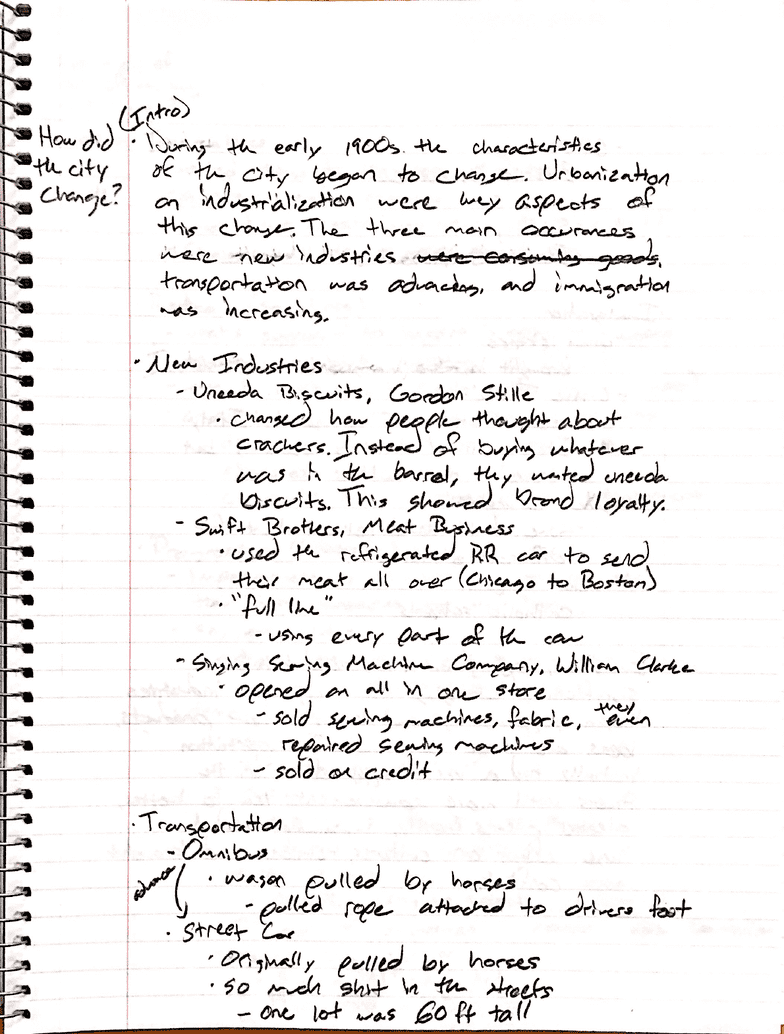 (Intro)
How did
the city
change?
· During the early 1900s the characteristics
of the city began to change. Urbanization
an industrialization were key aspects of
this change. The three main occurances
were new industries were consuming goods,
transportation was advacing, and immigration
was increasing.
· New Industries
- Uneeda Biscuits, Gordon Stille
· changed how people thought about
crackers. Instead of buying whatever
was in the barrel, they wanted uneeda
biscuits. This showed brand loyalty.
- Swift Brothers, Meat Business
· used the refrigerated RR car to send
their meat all over (Chicago to Boston)
· "full line"
- using every part of the cow
- Singing Sewing Machine Company, William Clarke
· opened an all in one store
- sold sewing machines, fabric, they even
repaired sewing machines
- sold on credit
· Transportation
- Omnibus
· wagon pulled by horses
- pulled rope attached to drivers foot
advance
· Street Car
· Originally pulled by horses
· so much shit in the streets
- one lot was 60 ft tall